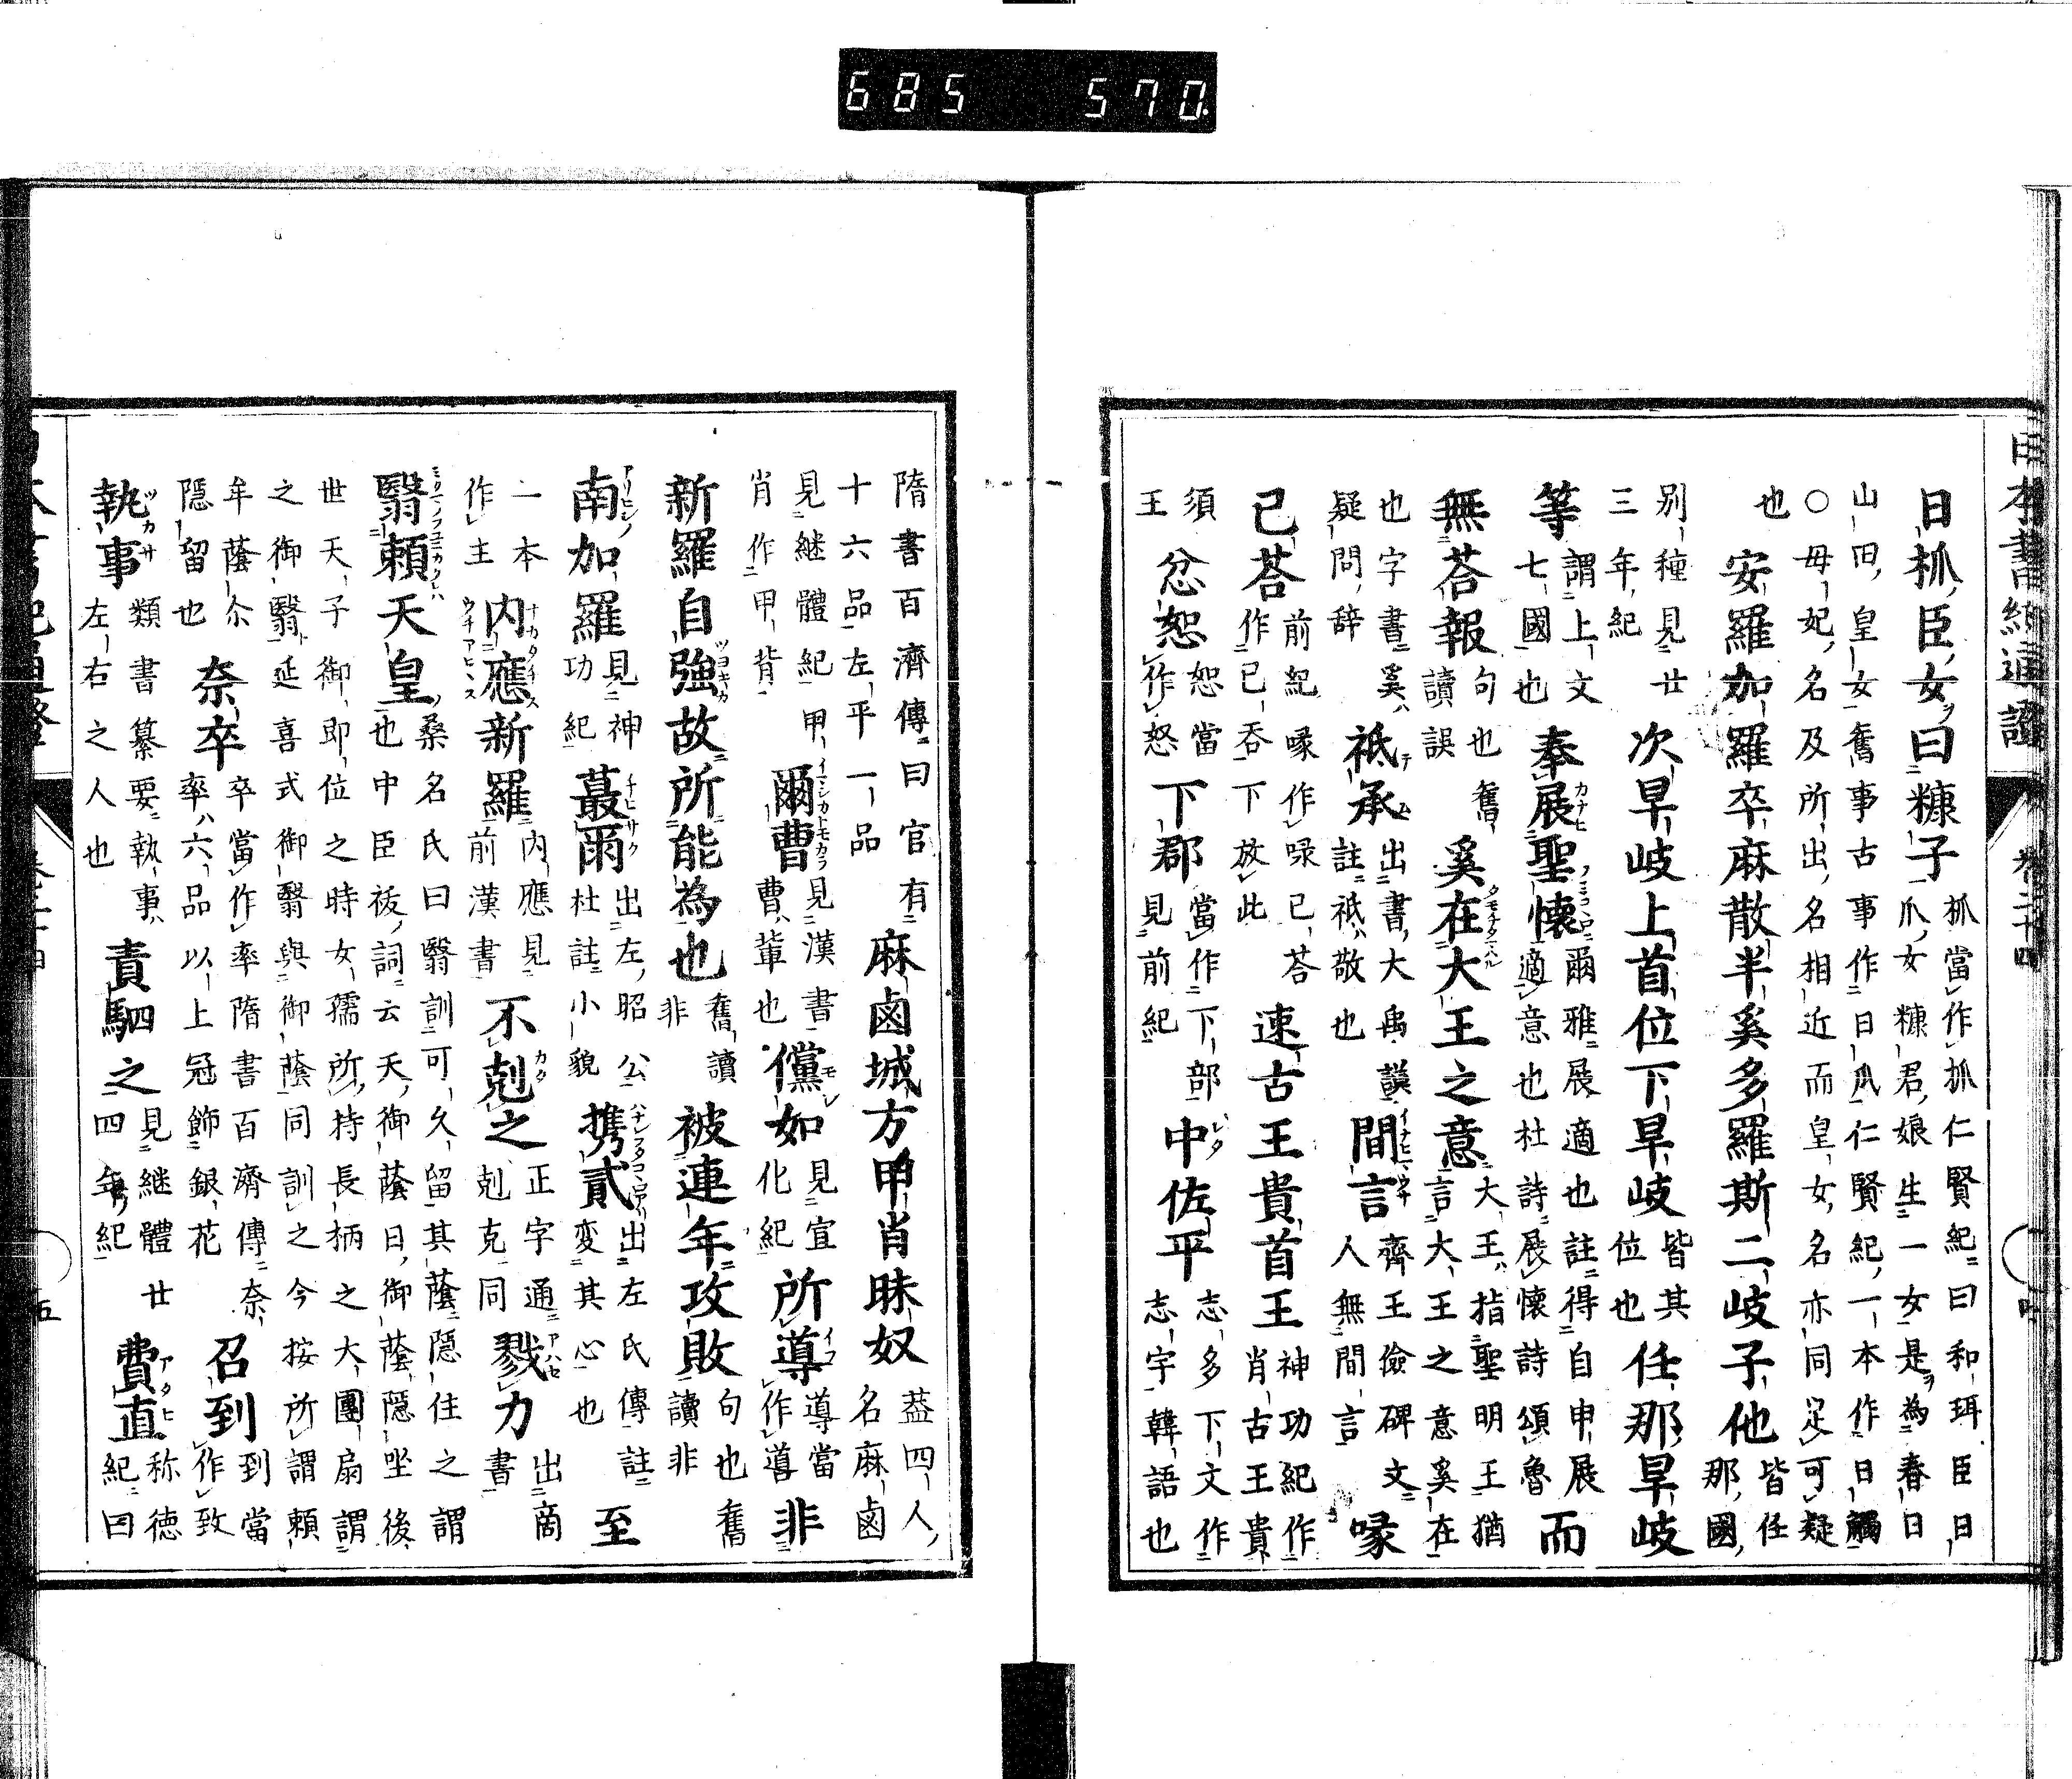 日本書紀通證
卷二十四
日抓臣女曰糠子 抓當作抓仁賢紀曰和珥臣日爪女糠君娘生一女是為春日
山田皇女舊事古事作日爪仁賢紀一本作日觸○毋妃名及所出名相近而皇女名亦同定可疑
也 安羅加羅卒麻散半奚多羅斯二岐子他 皆任那國
別種見廿三年紀 次旱岐上首位下旱岐 皆其位也 任那旱岐
等 謂上文七國也 奉展聖懷 爾雅展適也註得自申展適意也杜詩展懷詩頌魯 而
無荅報 句也舊讀誤 奚在大王之意 大王指聖明王猶言大王之意奚在
也字書奚疑問辞 祇承 出書大禹謨註祇敬也 間言 齊王儉碑文人無間言 喙
己荅 前紀喙作㖨已荅作已吞下放此 速古王貴首王 神功紀作肖古王貴
須王 忿恕 恕當作怒 下郡 當作下部見前紀 中佐平 志多下文作志宇韓語也
隋書百濟傳曰官有十六品左平一品 麻鹵城方甲肖昧奴 葢四人名麻鹵
見継體紀甲肖作甲背 爾曹 見漢書曹輩也 儻如 見宣化紀 所導 導當作導 非
新羅自強故所能為也 舊讀非 被連年攻敗 句也舊讀非
南加羅 見神功紀 蕞爾 出左昭公杜註小貌 携貳 出左氏傳註変其心也 至
一本作主 内應新羅 内應見前漢書 不剋之 正字通剋克同 戮力 出商書
翳頼天皇 桑名氏曰翳訓可久留其蔭隱住之謂也中臣祓詞云天御蔭日御蔭隱坐後
世天子御即位之時女孺所持長柄之大團扇謂之御翳延喜式御翳與御蔭同訓之今按所謂頼
牟蔭尒隱留也 奈卒 卒當作率隋書百濟傳奈率六品以上冠飾銀花 召到 到當作致
執事 類書纂要執事左右之人也 責駟之 見継體廿四年紀 費直 称徳紀曰
五
685 570